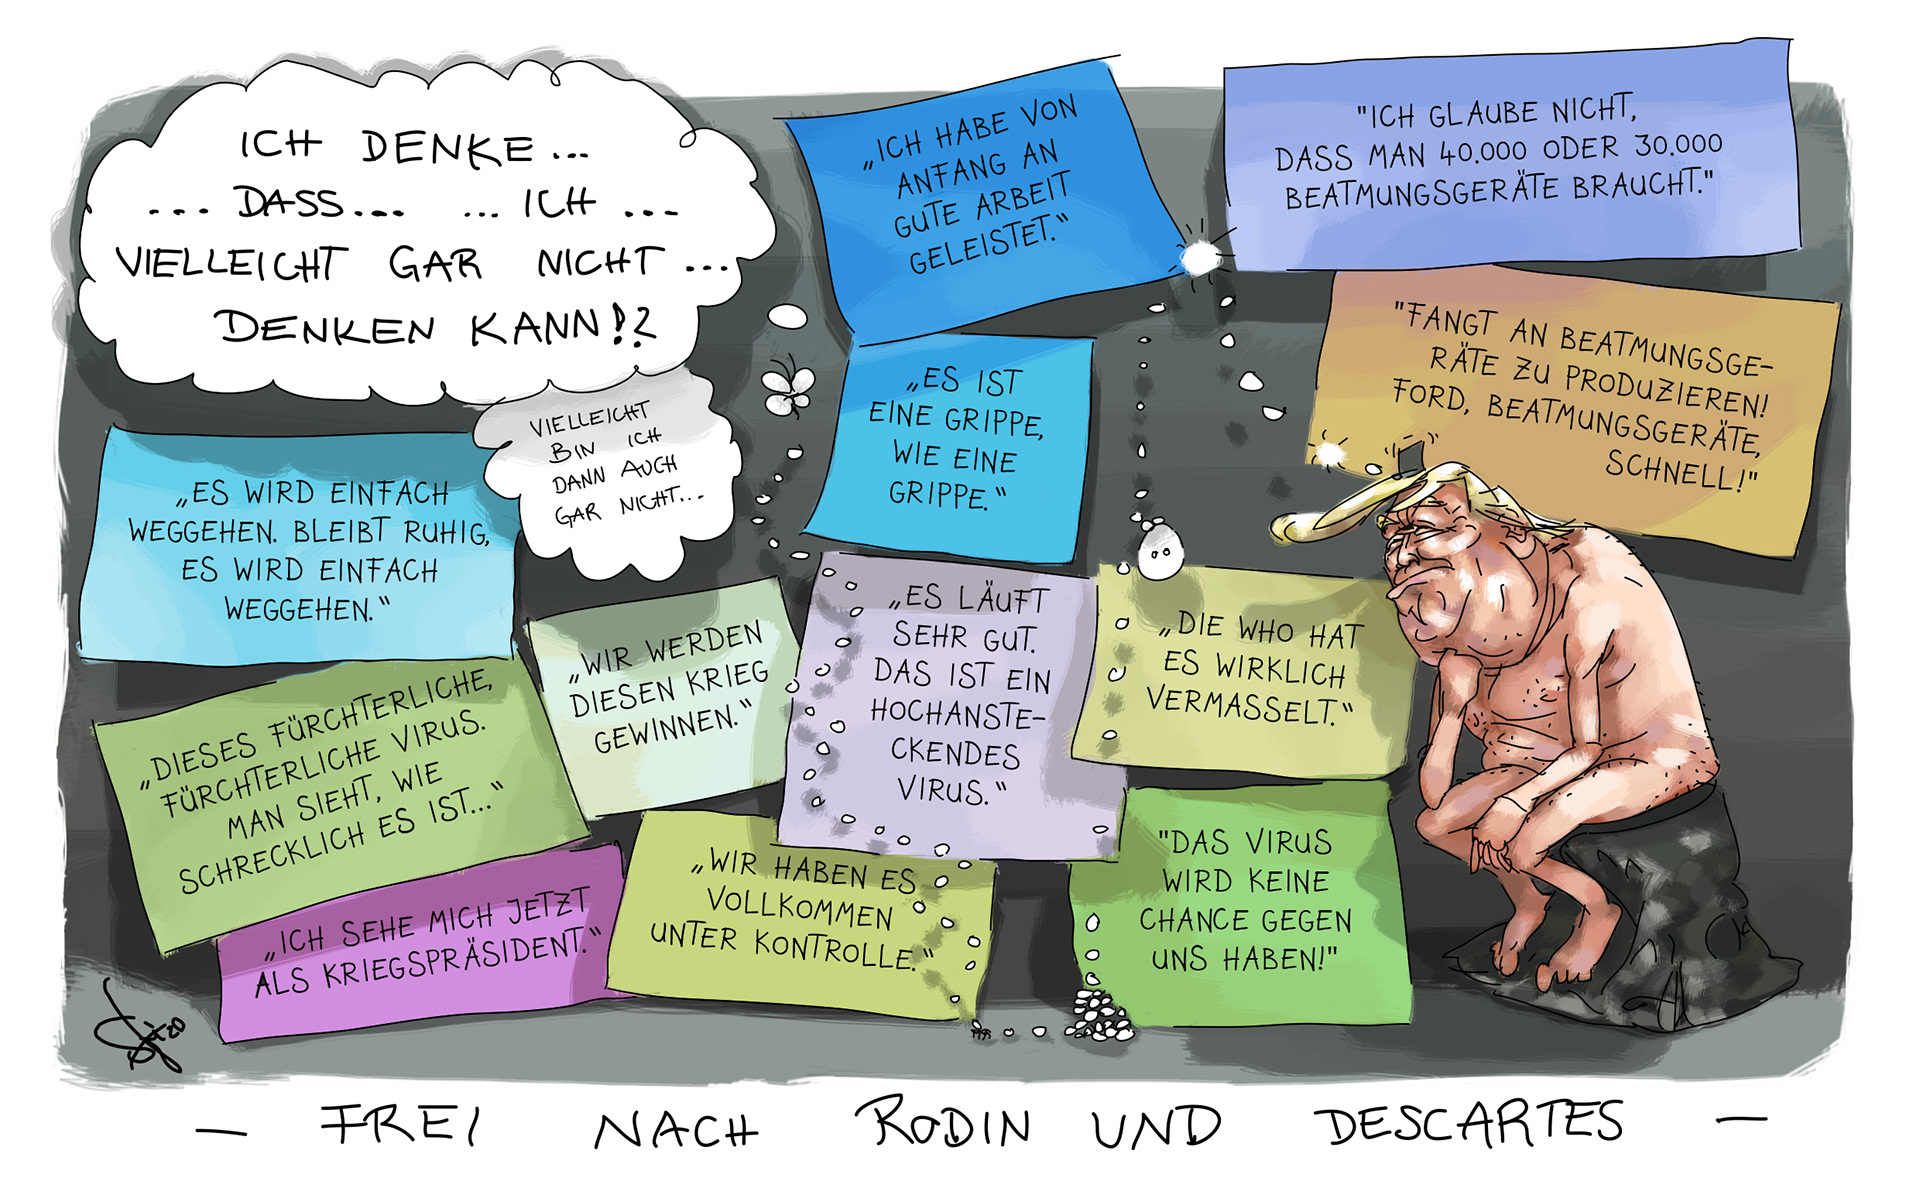 ICH DENKE...
... DASS... ... ICH ...
VIELLEICHT GAR NICHT ...
DENKEN KANN!?
VIELLEICHT
BIN ICH
DANN AUCH
GAR NICHT...
„ICH HABE VON
ANFANG AN
GUTE ARBEIT
GELEISTET.“
"ICH GLAUBE NICHT,
DASS MAN 40.000 ODER 30.000
BEATMUNGSGERÄTE BRAUCHT."
"FANGT AN BEATMUNGSGE-
RÄTE ZU PRODUZIEREN!
FORD, BEATMUNGSGERÄTE,
SCHNELL!"
„ES IST
EINE GRIPPE,
WIE EINE
GRIPPE.“
„ES WIRD EINFACH
WEGGEHEN. BLEIBT RUHIG,
ES WIRD EINFACH
WEGGEHEN.“
„WIR WERDEN
DIESEN KRIEG
GEWINNEN.“
„ES LÄUFT
SEHR GUT.
DAS IST EIN
HOCHANSTE-
CKENDES
VIRUS.“
„DIE WHO HAT
ES WIRKLICH
VERMASSELT.“
„DIESES FÜRCHTERLICHE,
FÜRCHTERLICHE VIRUS.
MAN SIEHT, WIE
SCHRECKLICH ES IST...“
„ICH SEHE MICH JETZT
ALS KRIEGSPRÄSIDENT.“
„WIR HABEN ES
VOLLKOMMEN
UNTER KONTROLLE.“
"DAS VIRUS
WIRD KEINE
CHANCE GEGEN
UNS HABEN!"
— FREI NACH RODIN UND DESCARTES —